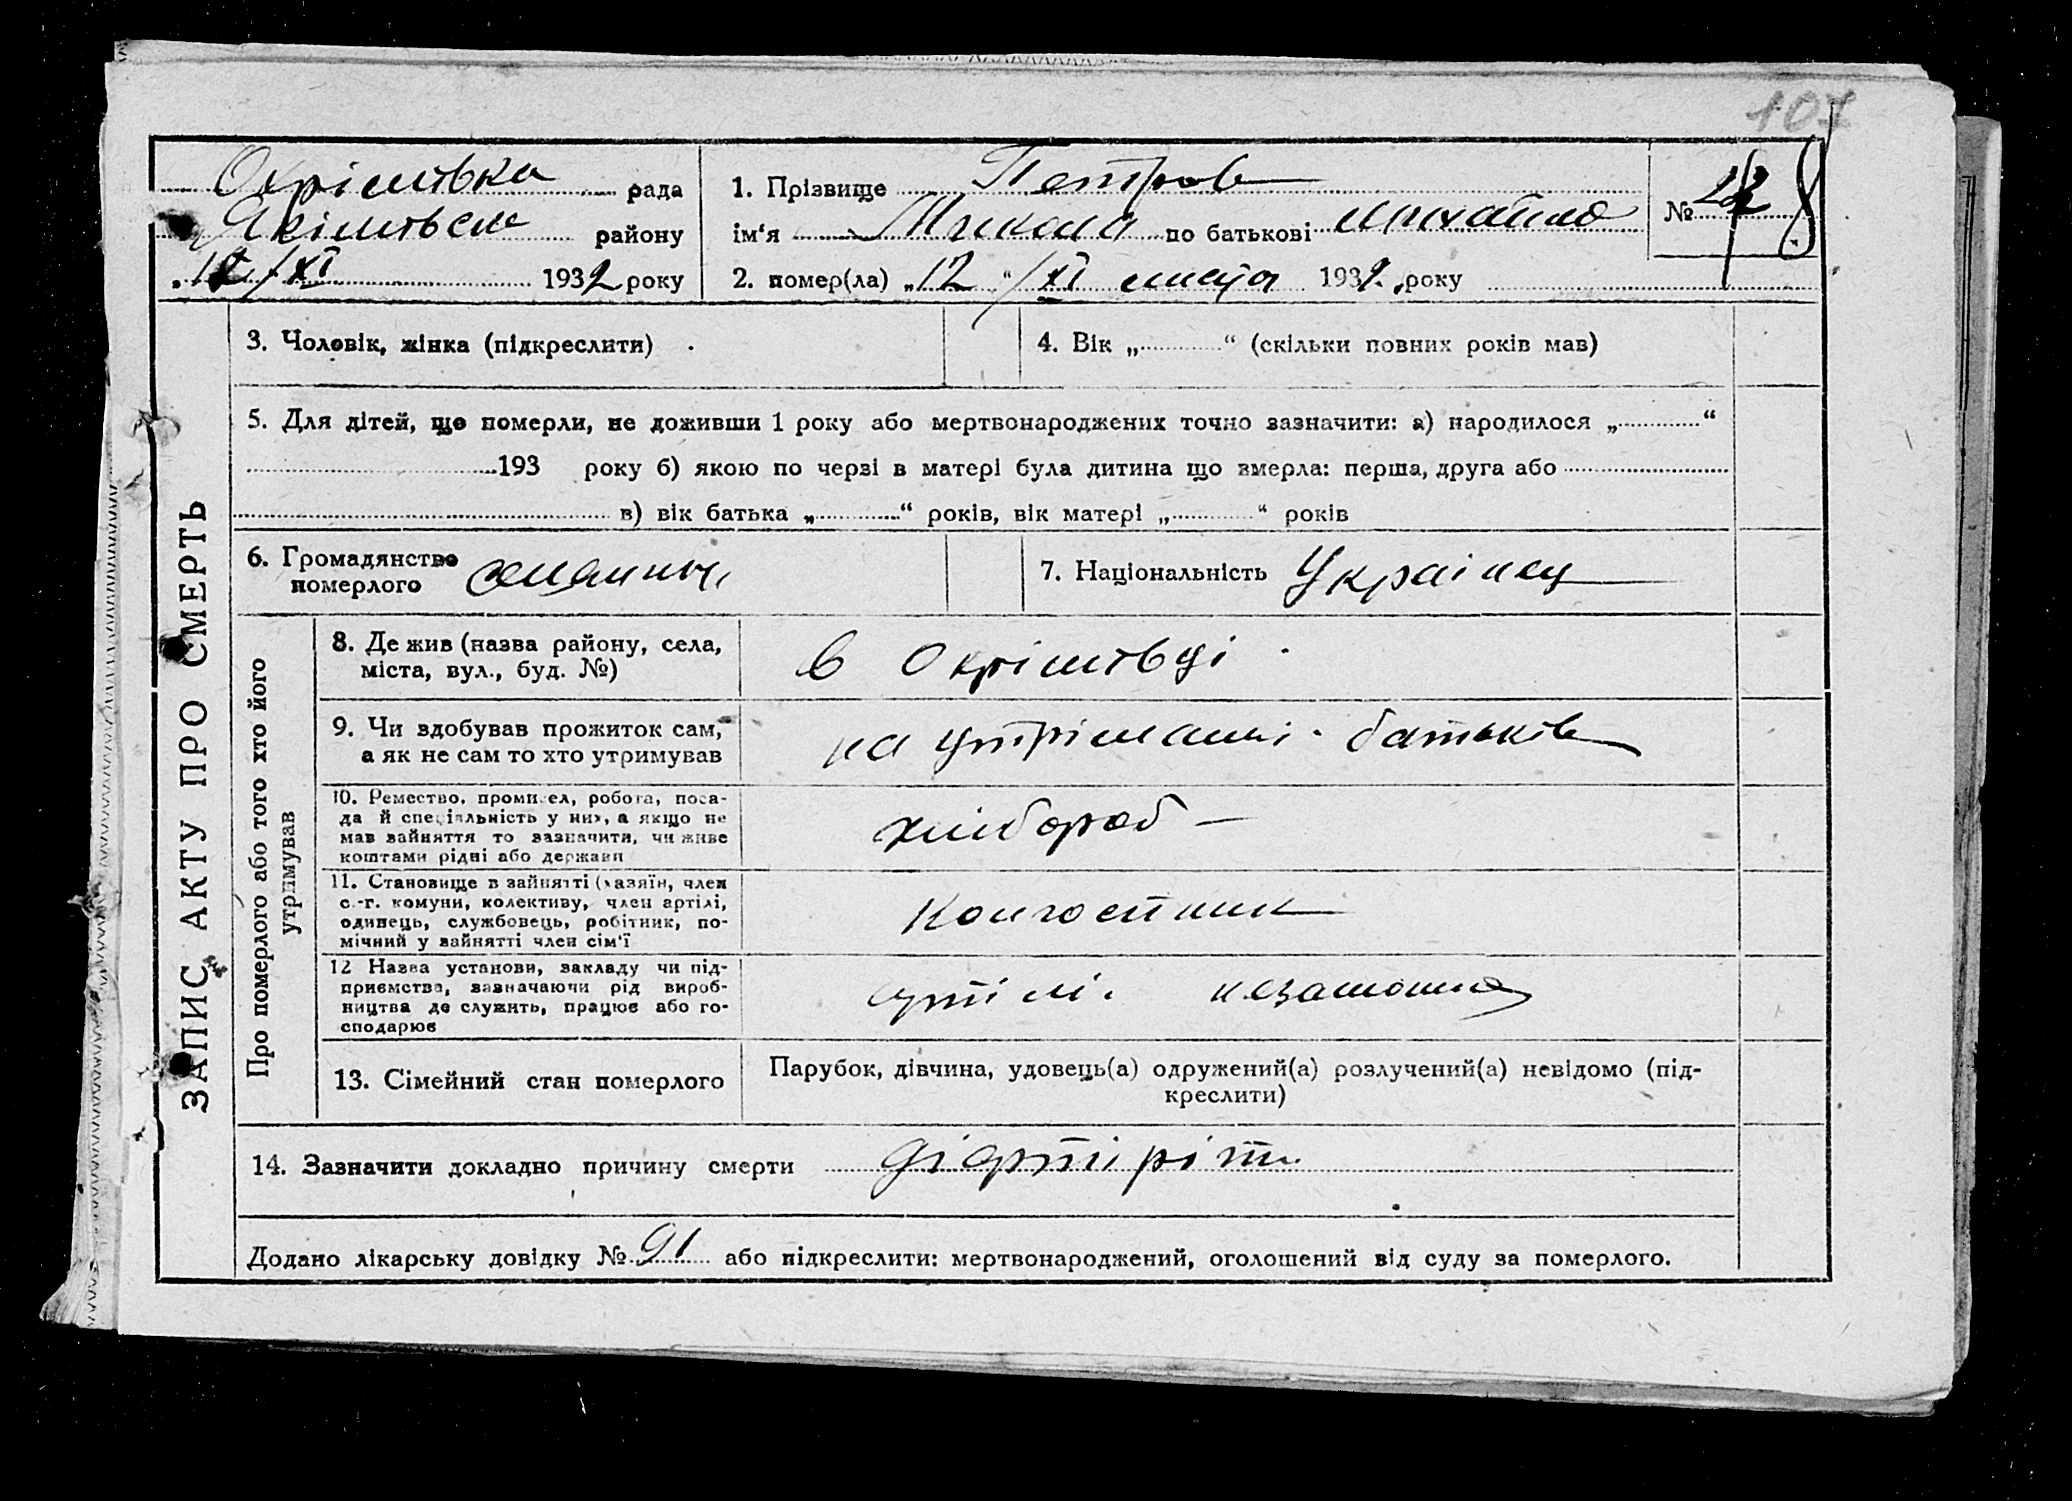 107
Охрімовка рада
Якімовськ району
12/XI 1932 року
1. Прізвище Петров
ім'я Микола по батькові михайло
№ 22 8
2. помер(ла) „12 “/XI місяця 1932 року
ЗАПИС АКТУ ПРО СМЕРТЬ
3. Чоловік, жінка (підкреслити)
4. Вік „ “ (скільки повних років мав)
5. Для дітей, що померли, не доживши 1 року або мертвонароджених точно зазначити: а) народилося „ “
193 року б) якою по черзі в матері була дитина що вмерла: перша, друга або
в) вік батька „ “ років, вік матері „ “ років
6. Громадянство
померлого селянин
7. Національність Украінец
Про померлого або того хто його
утримував
8. Де жив (назва району, села,
міста, вул., буд. №)
в Охрімовці
9. Чи вдобував прожиток сам,
а як не сам то хто утримував
на утріманні батьків
10. Ремество, промисел, робота, поса-
да й спеціяльність у них, а якщо не
мав вайняття то вазначити, чи живе
коштами рідні або держави
хлібороб —
11. Становище в зайнятті (хазяїн, член
с.-г. комуни, колективу, член артілі,
одинець, службовець, робітник, по-
мічний у вайнятті член сім'ї
Колгоспник
12 Назва установи, закладу чи під-
приємства, вазначаючи рід вироб-
ництва де служить, працює або го-
сподарює
артілі незаможне
13. Сімейний стан померлого
Парубок, дівчина, удовець(а) одружений(а) розлучений(а) невідомо (під-
креслити)
14. Зазначити докладно причину смерти діфтіріт
Додано лікарську довідку № 91 або підкреслити: мертвонароджений, оголошений від суду за померлого.